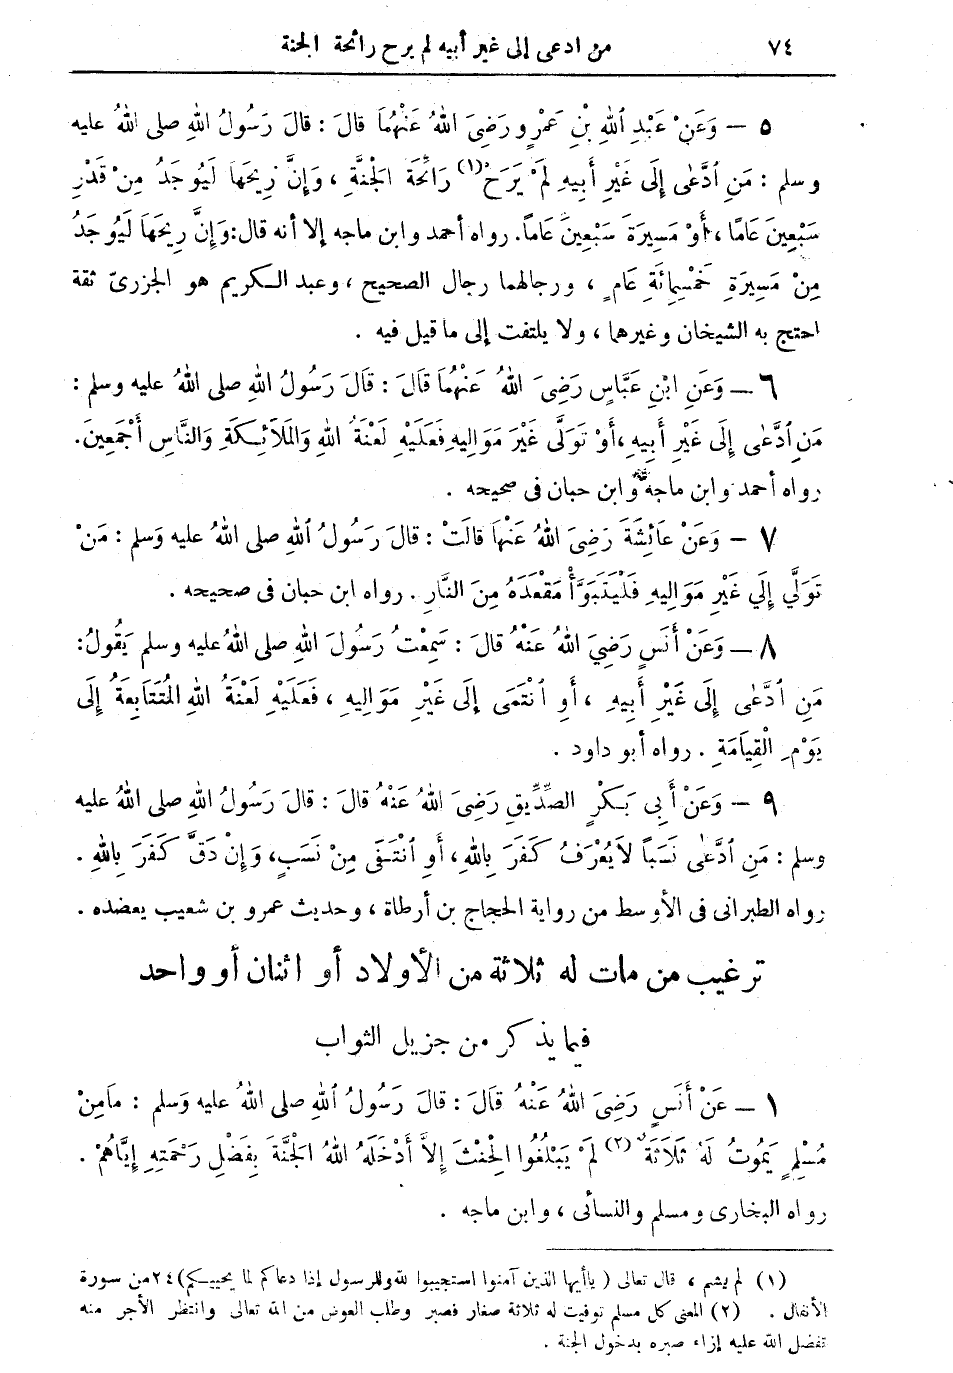 ٧٤ من ادعى إلى غير أبيه لم يرح رائحة الجنة
٥ – وَعَنْ عَبْدِ اللهِ بْنِ عَمْرٍو رَضِىَ اللهُ عَنْهُمَا قَالَ : قَالَ رَسُولُ اللهِ صلى اللهُ عليه
وسلم : مَنِ ادَّعَى إِلَى غَيْرِ أَبِيهِ لَمْ يَرَحْ (١) رَائِحَةَ الْجَنَّةِ ، وَإِنَّ رِيحَهَا لَيُوجَدُ مِنْ قَدْرِ
سَبْعِينَ عَامًا ، أَوْ مَسِيرَةَ سَبْعِينَ عَاماً. رواه أحمد وابن ماجه إلا أنه قال: وَإِنَّ رِيحَهَا لَيُوجَدُ
مِنْ مَسِيرَةِ خَمْسِمِائَةِ عَامٍ ، ورجالهما رجال الصحيح ، وعبد الكريم هو الجزرىّ ثقة
احتج به الشيخان وغيرهما ، ولا يلتفت إلى ما قيل فيه .
٦ – وَعَنِ ابْنِ عَبَّاسٍ رَضِىَ اللهُ عَنْهُمَا قَالَ : قَالَ رَسُولُ اللهِ صلى اللهُ عليه وسلم :
مَنِ ادَّعَى إِلَى غَيْرِ أَبِيهِ ، أَوْ تَوَلَّى غَيْرَ مَوَالِيهِ فَعَلَيْهِ لَعْنَةُ اللهِ وَالْمَلَائِكَةِ وَالنَّاسِ أَجْمَعِينَ.
رواه أحمد وابن ماجه وابن حبان فى صحيحه .
٧ – وَعَنْ عَائِشَةَ رَضِىَ اللهُ عَنْهَا قَالَتْ : قَالَ رَسُولُ اللهِ صلى اللهُ عليه وَسلم : مَنْ
تَوَلَّى إِلَى غَيْرِ مَوَالِيهِ فَلْيَتَبَوَّأْ مَقْعَدَهُ مِنَ النَّارِ . رواه ابن حبان فى صحيحه .
٨ – وَعَنْ أَنَسٍ رَضِيَ اللهُ عَنْهُ قَالَ : سَمِعْتُ رَسُولَ اللهِ صلى اللهُ عليه وسلم يَقُولُ:
مَنِ ادَّعَى إِلَى غَيْرِ أَبِيهِ ، أَوِ انْتَمَى إِلَى غَيْرِ مَوَالِيهِ ، فَعَلَيْهِ لَعْنَةُ اللهِ الْمُتَتَابِعَةُ إِلَى
يَوْمِ الْقِيَامَةِ . رواه أبو داود .
٩ – وَعَنْ أَبِى بَكْرٍ الصِّدِّيقِ رَضِىَ اللهُ عَنْهُ قَالَ : قَالَ رَسُولُ اللهِ صلى اللهُ عليه
وسلم : مَنِ ادَّعَى نَسَباً لَا يُعْرَفُ كَفَرَ بِاللهِ ، أَوِ انْتَفَى مِنْ نَسَبٍ، وَإِنْ دَقَّ كَفَرَ بِاللهِ .
رواه الطبرانى فى الأوسط من رواية الحجاج بن أرطاة ، وحديث عمرو بن شعيب يعضده .
ترغيب من مات له ثلاثة من الأولاد أو اثنان أو واحد
فيما يذكر من جزيل الثواب
١ – عَنْ أَنَسٍ رَضِىَ اللهُ عَنْهُ قَالَ : قَالَ رَسُولُ اللهِ صلى اللهُ عليه وَسلم : مَا مِنْ
مُسْلِمٍ يَمُوتُ لَهُ ثَلَاثَةٌ (٢) لَمْ يَبْلُغُوا الْحِنْثَ إِلَّا أَدْخَلَهُ اللهُ الْجَنَّةَ بِفَضْلِ رَحْمَتِهِ إِيَّاهُمْ .
رواه البخارى ومسلم والنسائى ، وابن ماجه .
(١) لم يشم ، قال تعالى ( ياأيها الذين آمنوا استجيبوا لله وللرسول إذا دعاكم لما يحييكم) ٢٤ من سورة
الأنفال . (٢) المعنى كل مسلم توفيت له ثلاثة صغار فصبر وطلب العوض من الله تعالى وانتظر الأجر منه
تفضل الله عليه إزاء صبره بدخول الجنة .